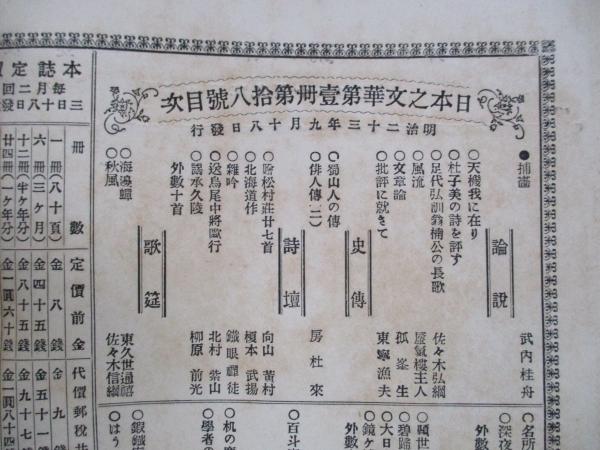 日本之文華第壹冊第拾八號目次
明治二十三年九月十八日發行
●插畵
武内桂舟
論說
○天機我に在り
○杜子美の詩を評す
○足代弘訓翁楠公の長歌
佐々木弘綱
○風流
蜃氣樓主人
○文章論
孤峯生
○批評に就きて
東寧漁夫
史傳
○蜀山人の傳
○俳人傳(二)
房杜來
詩壇
○噲松村莊廿七首
向山黃村
○北海道作
榎本武揚
○雜吟
鐵眼禪徒
○送鳥尾中將歐行
北村紫山
○謁承久陵
柳原前光
外數十首
歌筵
○海邊蟬
東久世通禧
○秋風
佐々木信綱
○名所
○深夜
外數
○碧歸
○大日
○鏡ケ
外數
○百斗
○机の
○學者の
○鍜鐵
○はう
本誌定價
每月二回
三日十八日發
冊數
定價前金
代價郵稅共
一冊(八十頁)
金八錢
金九錢
六冊(三ケ月)
金四十五錢
金五十一錢
十二冊(半ケ年分)
金八十五錢
金九十七錢
廿四冊(一ケ年分)
金一圓六十錢
金一圓八十四錢